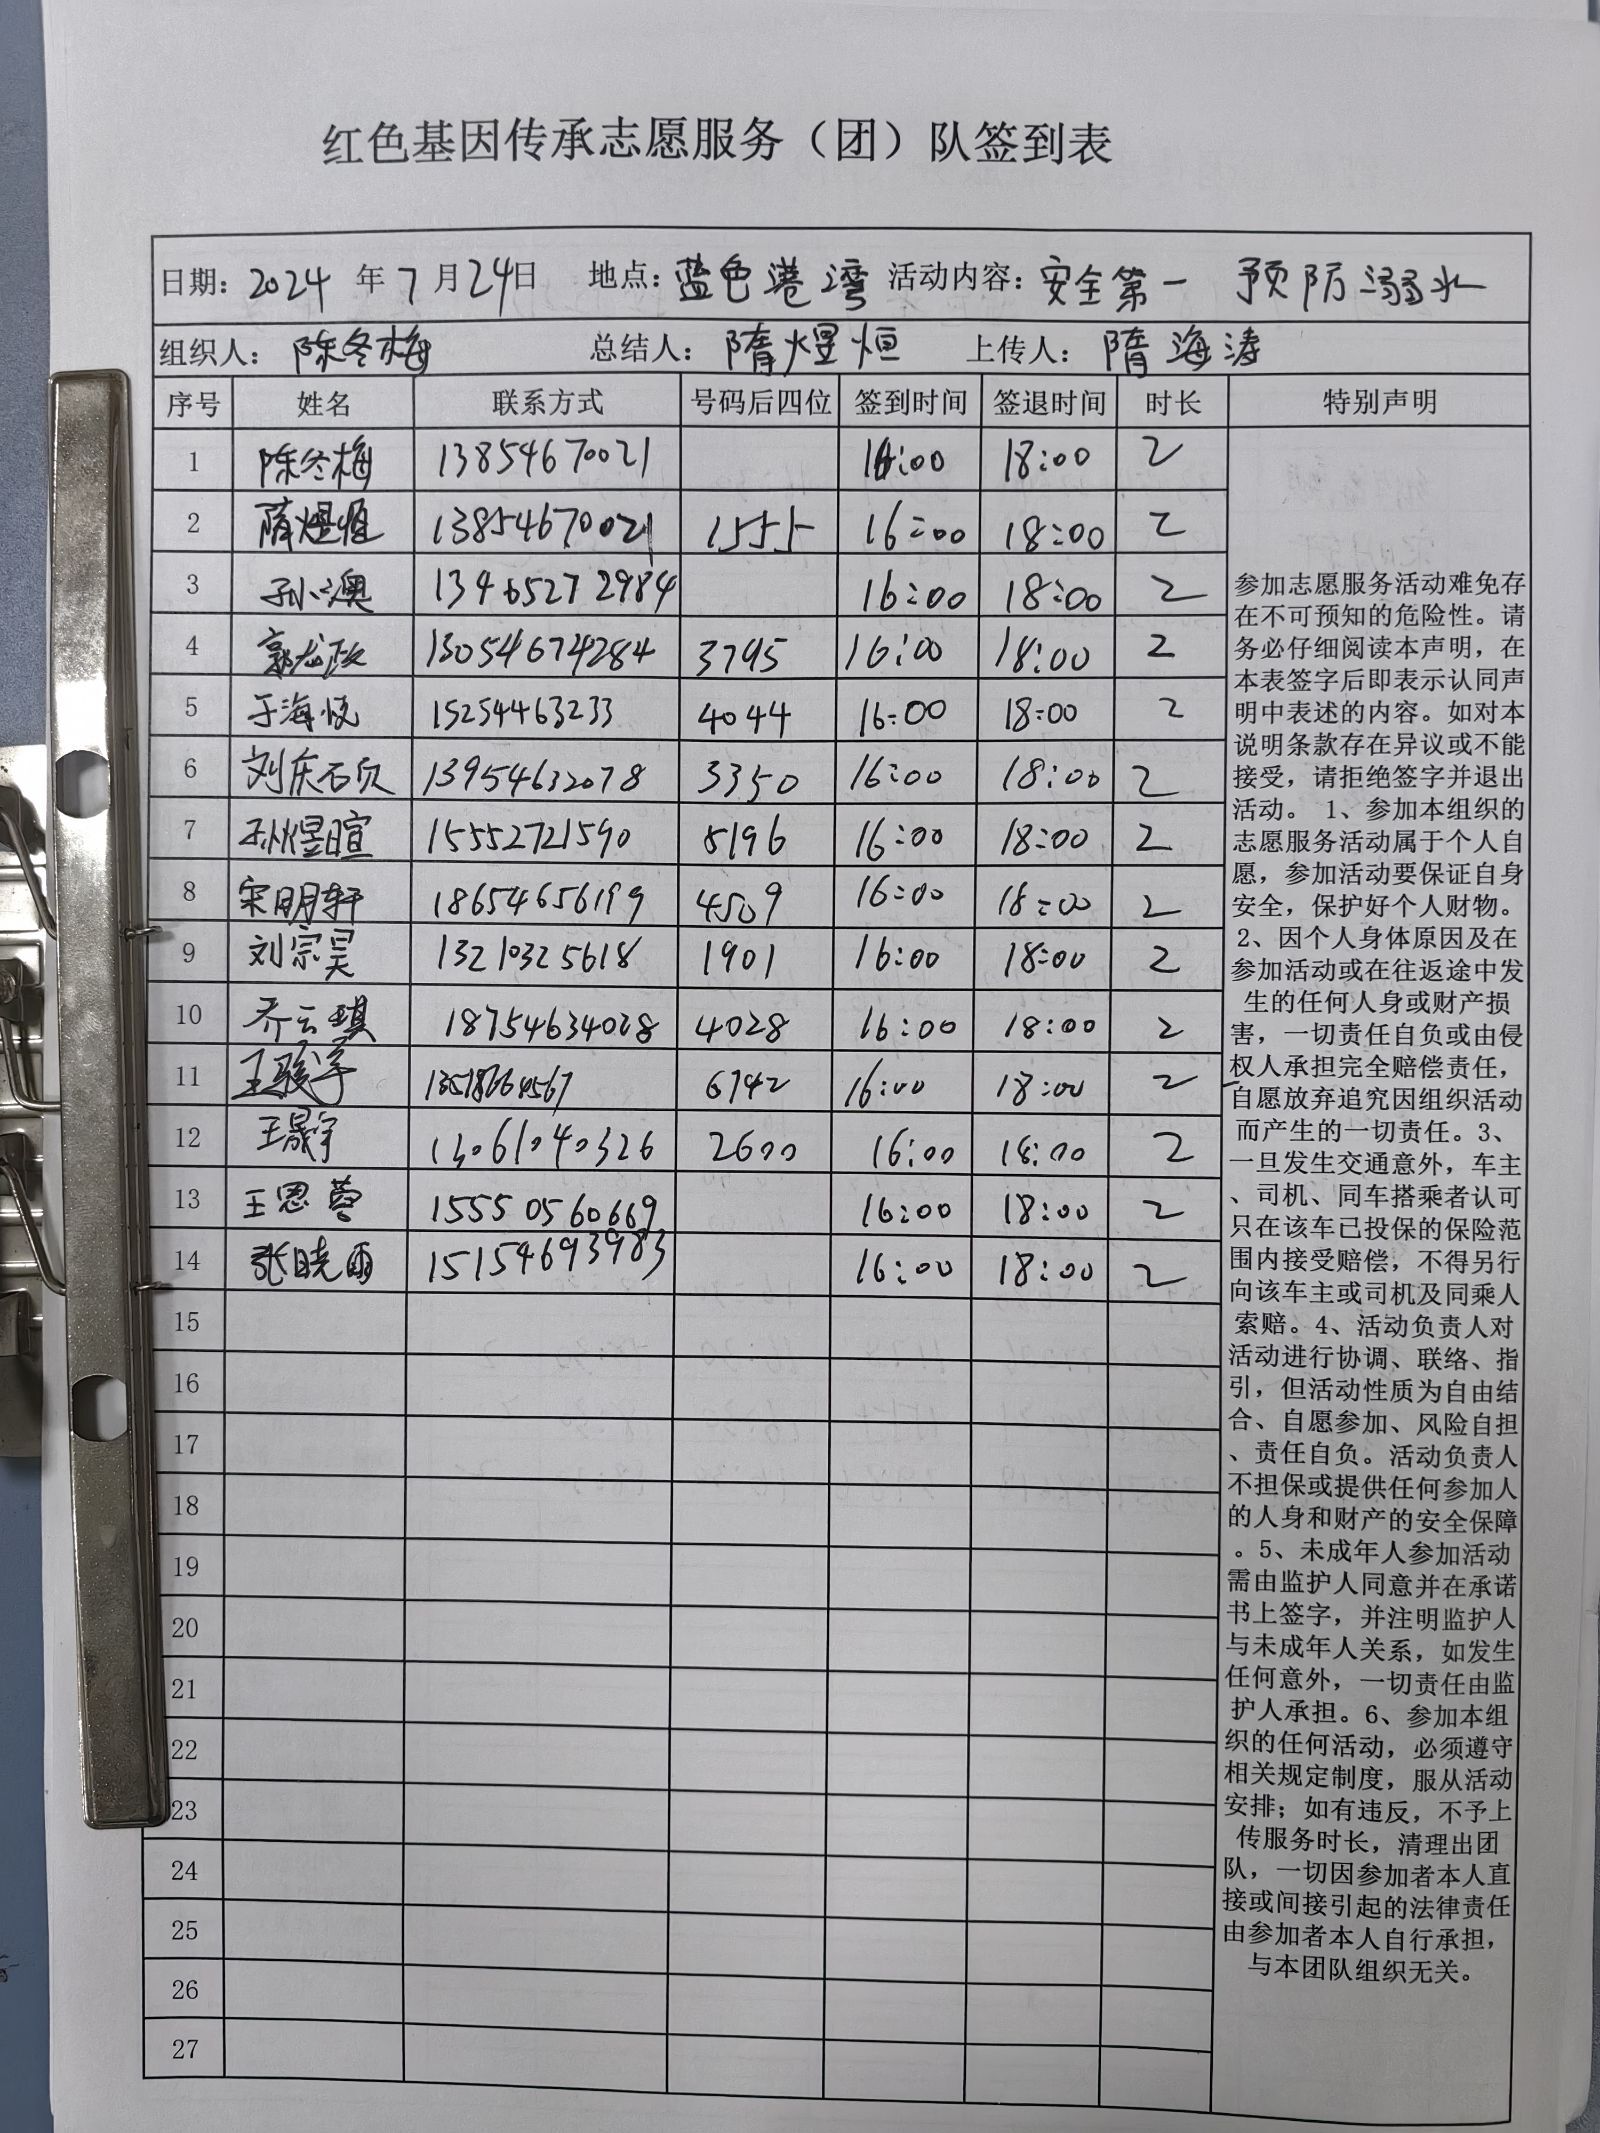 红色基因传承志愿服务（团）队签到表
日期：2024 年 7 月 24日 地点：蓝色港湾 活动内容：安全第一 预防溺水
组织人：陈冬梅 总结人：隋煜恒 上传人：隋海涛
序号 姓名 联系方式 号码后四位 签到时间 签退时间 时长 特别声明
1 陈冬梅 13854670021 16:00 18:00 2
2 隋煜恒 13854670021 1555 16:00 18:00 2
3 孙澳 13465272984 16:00 18:00 2
4 郭龙政 13054674284 3795 16:00 18:00 2
5 于海悦 15254463233 4044 16:00 18:00 2
6 刘庆石页 13954632078 3350 16:00 18:00 2
7 孙煜暄 15552721590 5196 16:00 18:00 2
8 宋明轩 18654656199 4509 16:00 18:00 2
9 刘宗昊 13210325618 1901 16:00 18:00 2
10 乔云琪 18754634028 4028 16:00 18:00 2
11 王骏宇 13518664567 6742 16:00 18:00 2
12 王晟宇 13061040326 2600 16:00 18:00 2
13 王恩蕾 15550560669 16:00 18:00 2
14 张晓雨 15154693983 16:00 18:00 2
15
16
17
18
19
20
21
22
23
24
25
26
27
参加志愿服务活动难免存
在不可预知的危险性。请
务必仔细阅读本声明，在
本表签字后即表示认同声
明中表述的内容。如对本
说明条款存在异议或不能
接受，请拒绝签字并退出
活动。 1、参加本组织的
志愿服务活动属于个人自
愿，参加活动要保证自身
安全，保护好个人财物。
2、因个人身体原因及在
参加活动或在往返途中发
生的任何人身或财产损
害，一切责任自负或由侵
权人承担完全赔偿责任，
自愿放弃追究因组织活动
而产生的一切责任。3、
一旦发生交通意外，车主
、司机、同车搭乘者认可
只在该车已投保的保险范
围内接受赔偿，不得另行
向该车主或司机及同乘人
索赔。4、活动负责人对
活动进行协调、联络、指
引，但活动性质为自由结
合、自愿参加、风险自担
、责任自负。活动负责人
不担保或提供任何参加人
的人身和财产的安全保障
。5、未成年人参加活动
需由监护人同意并在承诺
书上签字，并注明监护人
与未成年人关系，如发生
任何意外，一切责任由监
护人承担。6、参加本组
织的任何活动，必须遵守
相关规定制度，服从活动
安排；如有违反，不予上
传服务时长，清理出团
队，一切因参加者本人直
接或间接引起的法律责任
由参加者本人自行承担，
与本团队组织无关。